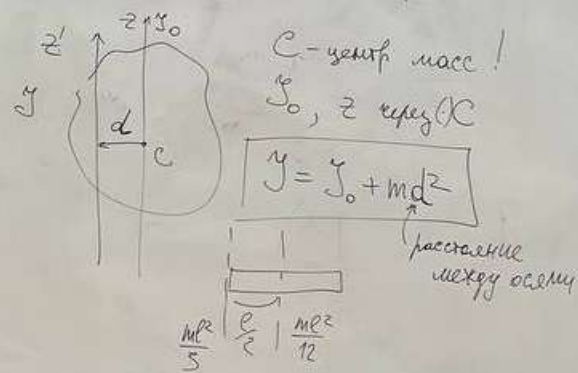 z' z J₀
C - центр масс !
J
J₀, z через (·) C
d
C
J = J₀ + md²
расстояние
между осями
ml²/3 l/2 ml²/12